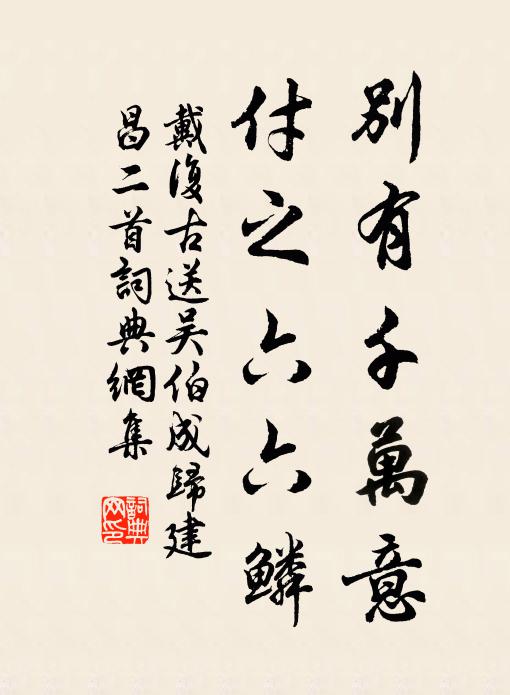 別有千萬意
付之六六鱗
戴復古送吴伯成歸建
昌二首詞典網集
詞典
网印